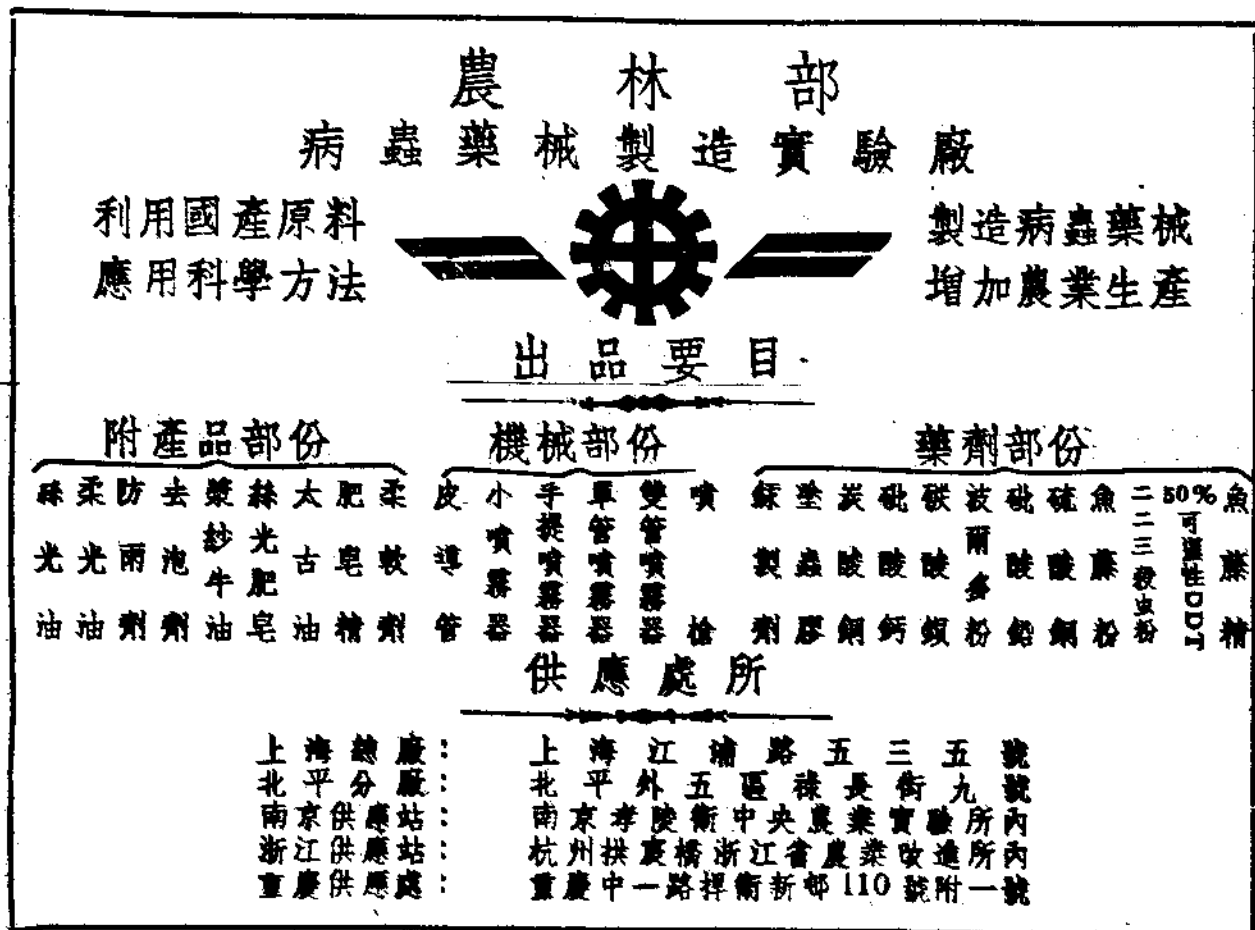 農林部
病蟲藥械製造實驗廠
製造病蟲藥械
增加農業生產
利用國產原料
應用科學方法
出品要目
藥劑部份
魚藤精
50%可濕性DDT
二二三殺虫粉
魚藤粉
硫酸銅
砒酸鉛
波爾多粉
碳酸鋇
砒酸鈣
炭酸銅
塗蟲膠
製劑
機械部份
噴槍
雙管噴霧器
單管噴霧器
手提噴霧器
小噴霧器
皮導管
附產品部份
柔軟劑
肥皂精
太古油
絲光肥皂
漿紗牛油
去泡劑
防雨劑
柔光油
絲光油
供應處所
上海總廠：上海江浦路五三五號
北平分廠：北平外五區祿長街九號
南京供應站：南京孝陵衛中央農業實驗所內
浙江供應站：杭州拱宸橋浙江省農業改進所內
重慶供應處：重慶中一路捍衛新邨110號附一號